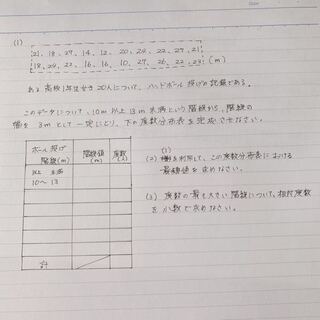 (1)
21, 18, 27, 14, 12, 20, 24, 22, 29, 21
18, 24, 22, 16, 16, 10, 27, 26, 22, 23 (m)
ある高校1年生女子20人について、ハンドボール投げの記録である。
このデータについて、10m以上13m未満という階級から、階級の
幅を3mとして一定にとり、下の度数分布表を完成させなさい。
ボール投げ
階級(m)
階級値
(m)
度数
(人)
以上 未満
10〜13
計
(1)
(2) を利用して、この度数分布表における
最頻値を求めなさい。
(3) 度数の最も大きい階級について、相対度数
を小数で求めなさい。